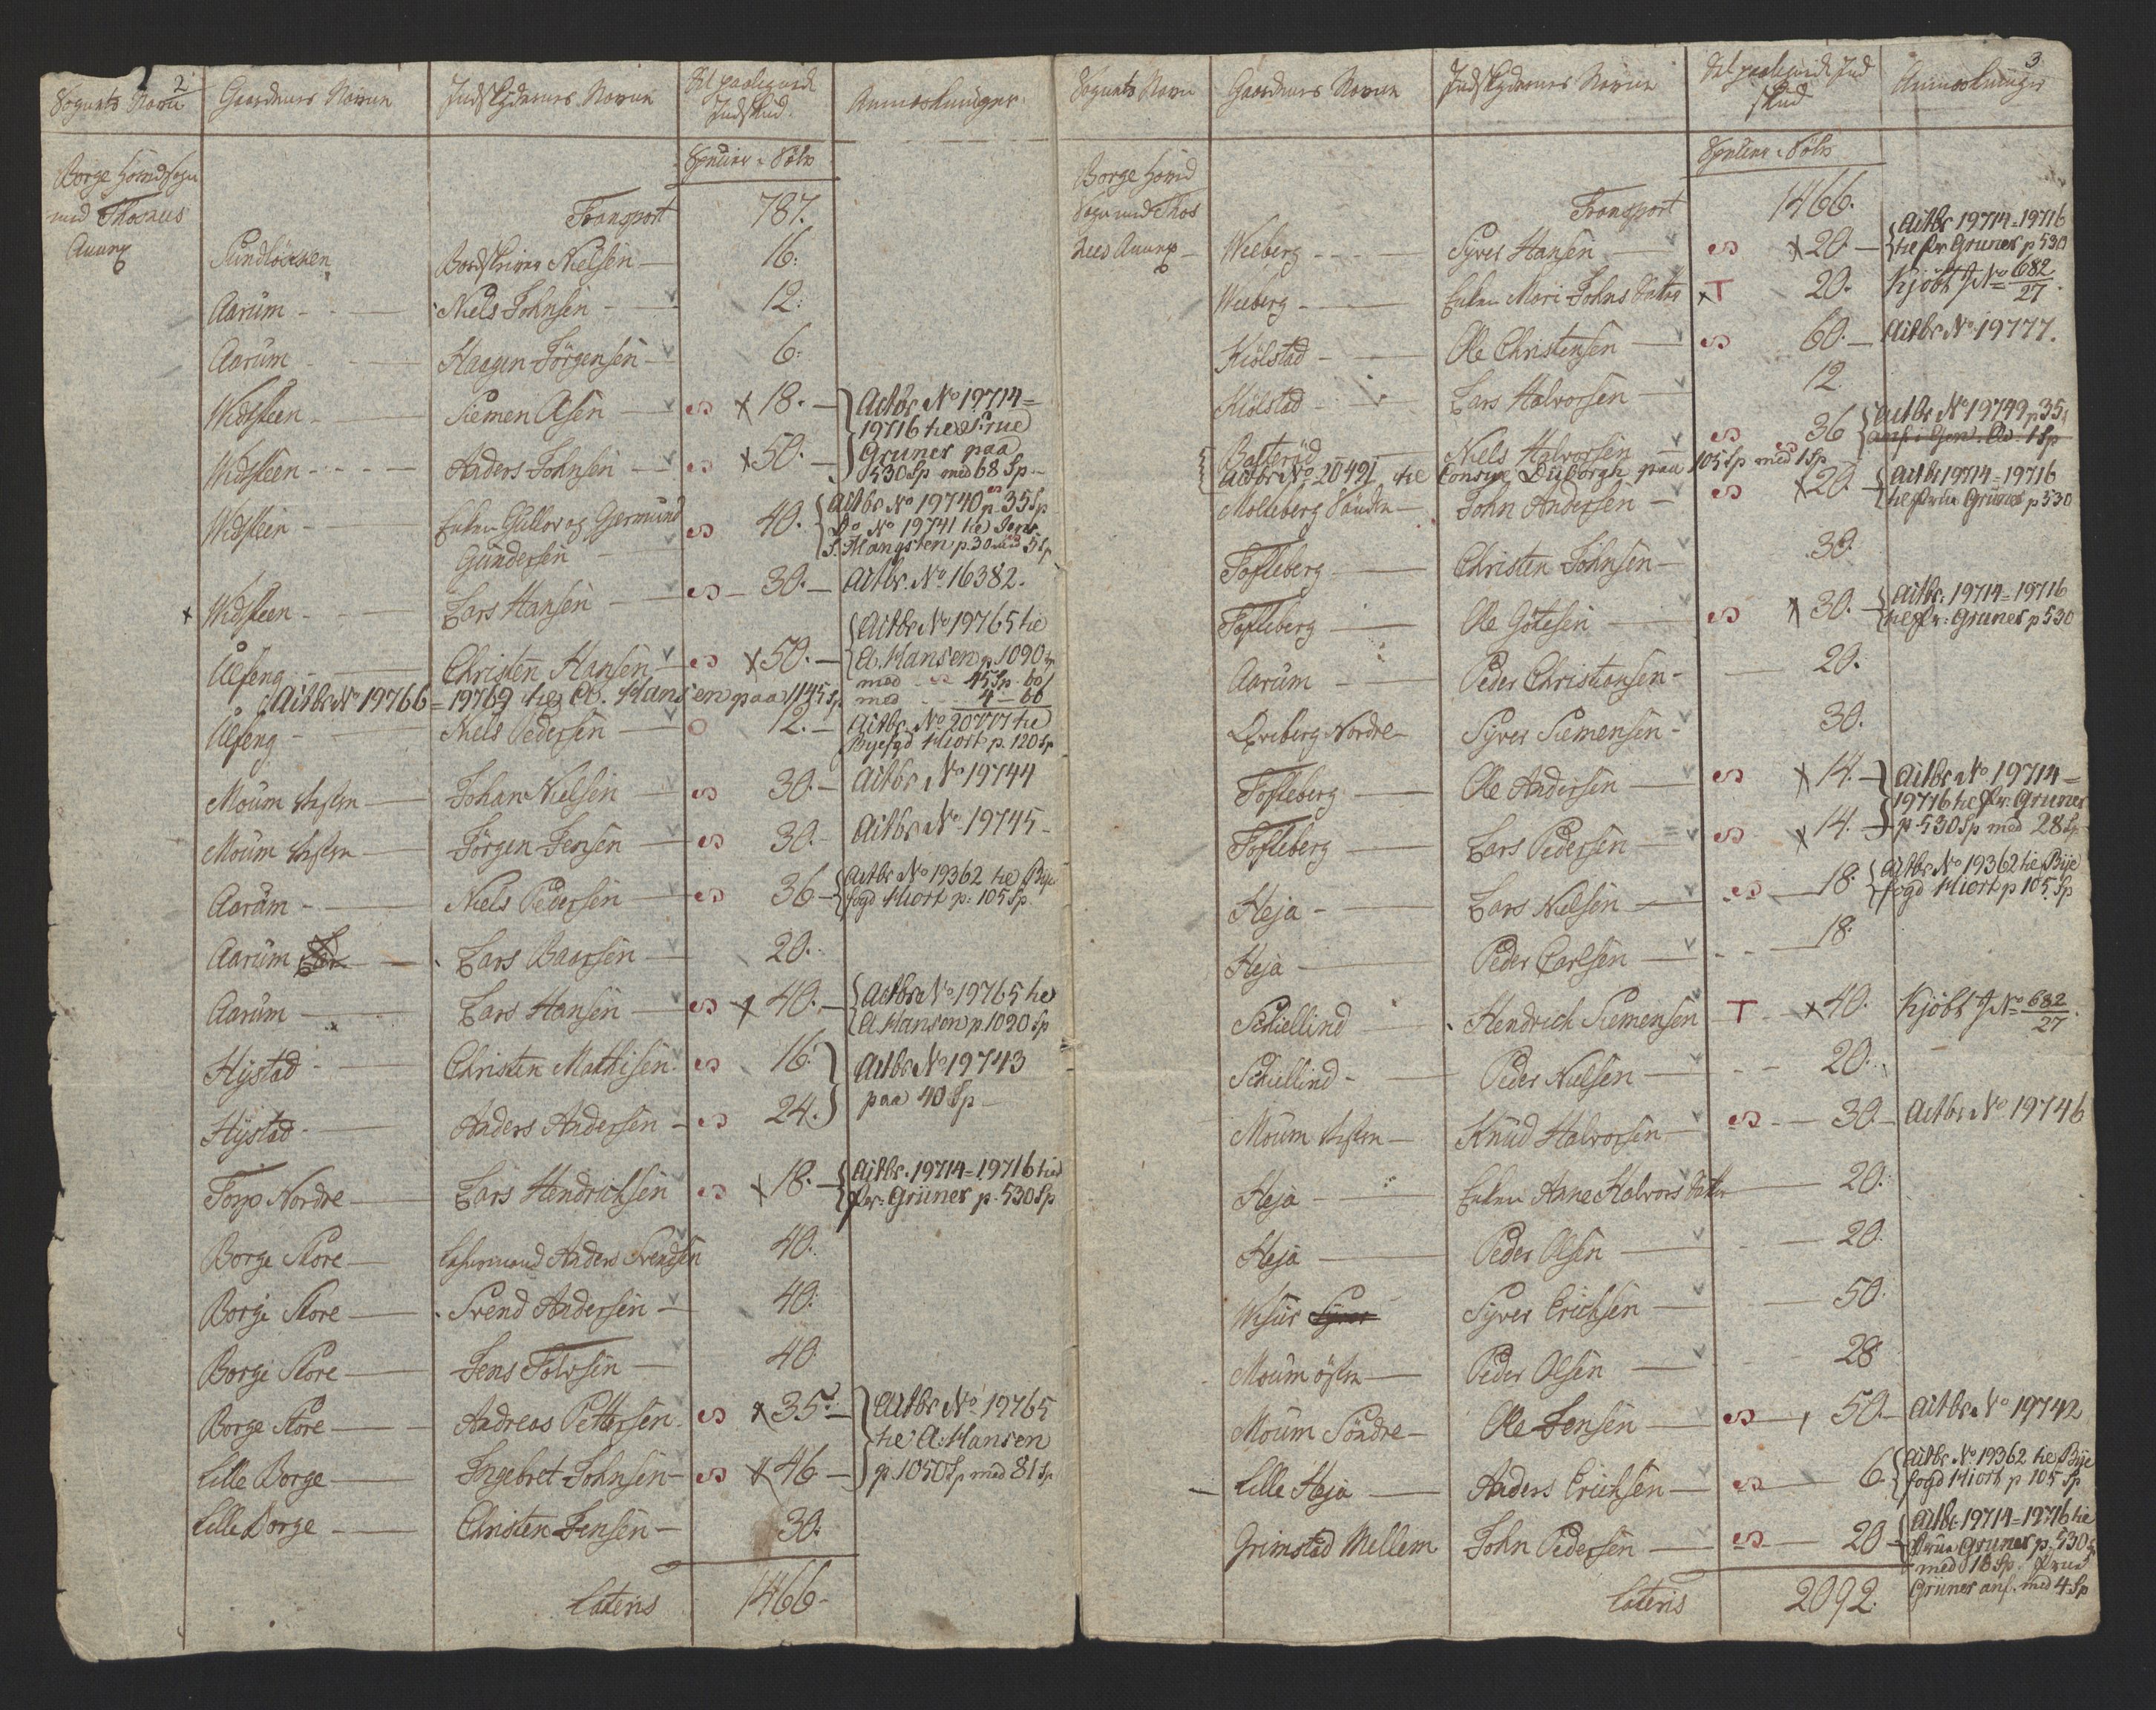 2
Sognets Navn Gaardenes Navne Indskydernes Navne Det paalignede Indskud Anmærkninger
Species Sölv
Borge Hovedsogn
med Thorsnes
Annex
Transport 787.
Sundlökken Bordskriver Nielsen 16.
Aarum Niels Johnsen 12.
Aarum Haagen Jörgensen 6.
Widsteen Siemen Olsen s x 18. Actbr No 19714=
19716 til Frue
Widsteen Anders Johnsen s x 50. Gruner paa
530 Sp med 68 Sp
Widsteen Enken Gullor og Gjermund s 40. Actbr No 19740 p. 35 Sp
Gundersen Do No 19741 til Jens
S. Mangsten p. 30 med 5 Sp
x Widsteen Lars Hansen s 30. Actbr. No 16382.
Ulfeng Christen Hansen s x 50. Actbr No 19765 til
A. Hansen p. 1090 Sp
med 45 Sp. 60
Actbr No 19766=19769 til A. Hansen paa 1145 Sp med 4 - 60
Ulfeng Niels Pedersen 12. Actbr. No 20717 til
Byefgd Hiort p. 120 Sp
Moum Vestre Johan Nielsen s 30. Actbr No 19744
Moum Vestre Jörgen Jensen s 30. Actbr No 19745
Aarum Niels Pedersen s 36 Actbr No 19362 til Bye
fogd Hiort p. 105 Sp.
Aarum Lars Baarsen 20.
Aarum Lars Hansen s x 40. Actbr No 19765 til
A. Hansen p. 1090 Sp
Hystad Christen Mathisen s 16. Actbr No 19743
Hystad Anders Andersen s 24. paa 40 Sp
Torp Nordre Lars Hendrichsen s x 18. Actbr. 19714=19716 til
Fr. Gruner p. 530 Sp
Borge Store Lehnsmand Anders Svendsen 40.
Borge Store Svend Andersen 40.
Borge Store Jens Tolvsen 40
Borge Store Andreas Pettersen s x 35. Actbr No 19765
til A. Hansen
Lille Borge Ingebret Johnsen s x 46 p. 1050 Sp med 81 Sp
Lille Borge Christen Jensen 30.
Lateris 1466
3
Sognets Navn Gaardenes Navne Indskydernes Navne Det paalignede Ind
skud Anmærkninger
Species Sölv
Borge Hoved
Sogn med Thos
nees Annex
Transport 1466.
Weeberg Syver Hansen s x 20. Actbr 19714=19716
til Fr. Gruner p 530
Weeberg Enken Mari Johns datter x T 20. Kjöbt J No 682/27.
Kiölstad Ole Christensen s 60. Actbr No 19777.
Kiölstad Lars Halvorsen 12
Batteröd Niels Halvorsen s 36 Actbr No 19749 p 35
Actbr No 20491 til Consul Duborgh paa 105 Sp med 1 Sp
Molleberg Söndre John Andersen s x 20. Actbr 19714=19716
til Frue Gruner p 530
Tofteberg Christen Johnsen 30.
Tofteberg Ole Götesen s x 30. Actbr. 19714=19716
til Fr. Gruner p 530
Aarum Peder Christiansen 20.
Qveberg Nordre Syver Siemensen 30.
Tofteberg Ole Andersen s x 14. Actbr No 19714=
19716 til Fr. Gruner
Tofteberg Lars Pedersen s x 14. p. 530 Sp med 28 Sp
Heja Lars Nielsen s 18. Actbr No 19362 til Bye
fogd Hiort p 105 Sp
Heja Peder Carlsen 18.
Schiellind Hendrich Siemensen T x 40. Kjöbt J No 682/27.
Schiellind Peder Nielsen 20.
Moum Vestre Knud Halvorsen s 30 Actbr No 19746
Heja Enken Anne Halvors datter 20.
Heja Peder Olsen 20.
Visür Syver Erichsen 50.
Moum östre Peder Olsen 28
Moum Söndre Ole Jensen s 50. Actbr No 19742
Lille Heja Anders Erichsen s 6 Actbr. No 19362 til Bye
fogd Hiort p 105 Sp
Grimstad Mellem John Pedersen s 20 Actbr. 19714=19716 til
Frue Gruner p. 530 Sp
med 18 Sp. Frue
Gruner anf. med 4 Sp
Lateris 2092.